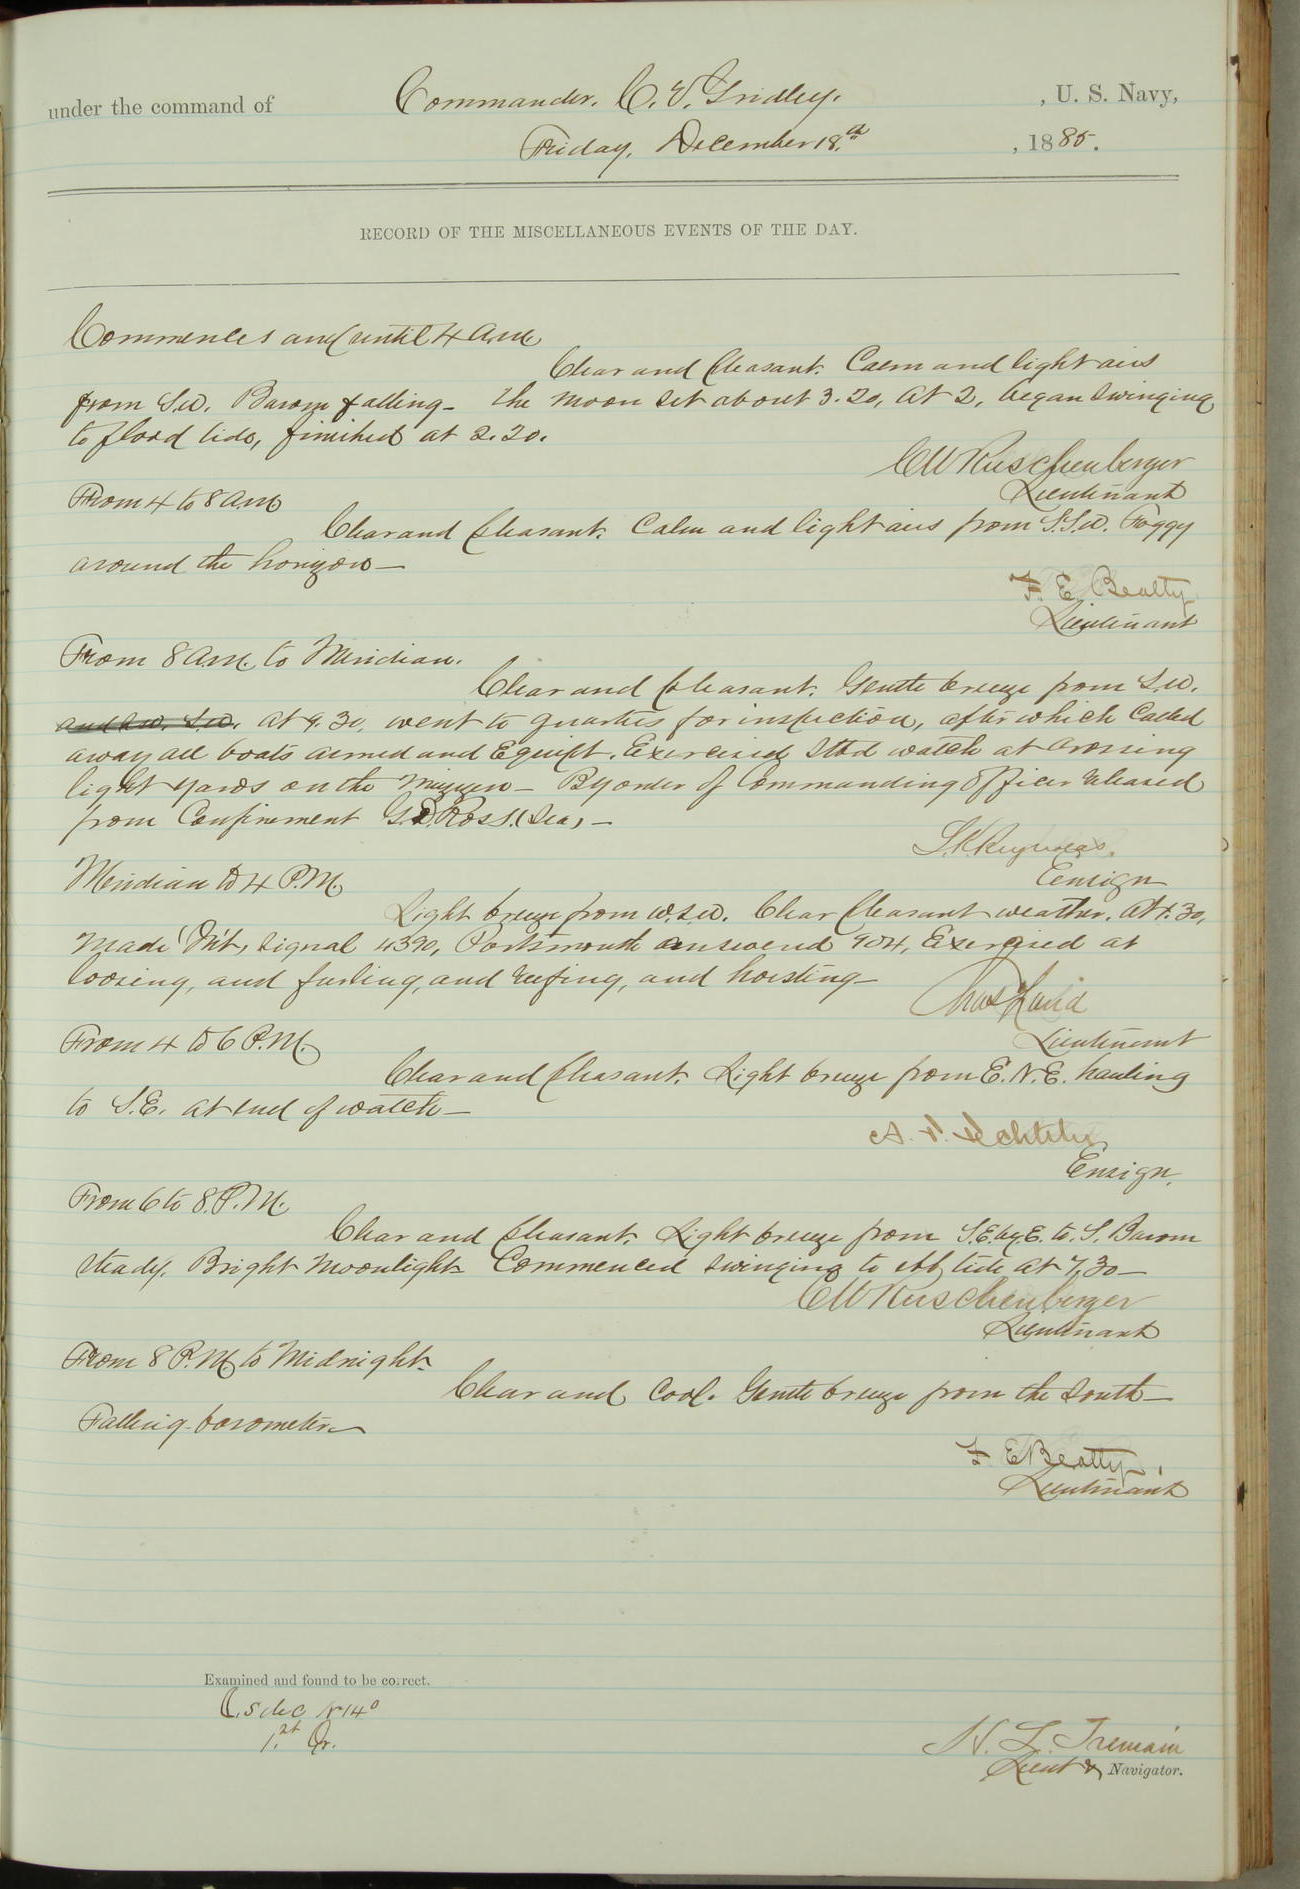 under the command of Commander. C. V. Gridley. , U. S. Navy,
Friday, December 18.th , 1885.
RECORD OF THE MISCELLANEOUS EVENTS OF THE DAY.
Commences and until 4 a.m.
Clear and pleasant. Calm and light airs
from S.W. Barom falling— The moon set about 3.20, At 2, began swinging
to flood tide, finished at 2.20.
CW Ruschenberger
Lieutenant
From 4 to 8 a.m.
Clear and pleasant. Calm and light airs from S.S.W. Foggy
around the horizon—
F. E. Beatty
Lieutenant
From 8 a.m. to Meridian.
Clear and pleasant. Gentle breeze from S.W.
At 9.30, went to quarters for inspection, after which called
away all boats armed and Equipt. Exercised Stbd watch at crossing
light yards on the Mizzen— By order of Commanding Officer released
from Confinement G. D. Ross. (Sea) —
S.K. Reynolds.
Ensign
Meridian to 4 P.M.
Light breeze from W.S.W. Clear pleasant weather. At 1.30,
made Int. Signal 4390, Portsmouth answered 904, Exercised at
loosing, and furling, and reefing, and hoisting—
Chas Laird
Lieutenant
From 4 to 6 P.M.
Clear and pleasant. Light breeze from E.N.E. hauling
to S.E. at end of watch—
A. F. Fechteler
Ensign.
From 6 to 8. P.M.
Clear and pleasant. Light breeze from S.E. by E. to S. Barom
steady. Bright Moonlight. Commenced swinging to ebb tide at 7.30—
CW Ruschenberger
Lieutenant
From 8 P.M. to Midnight.
Clear and Cool. Gentle breeze from the South—
Falling barometer—
F E Beatty.
Lieutenant
Examined and found to be correct.
1.st Qr.
H. L. Tremain
Lieut & Navigator.